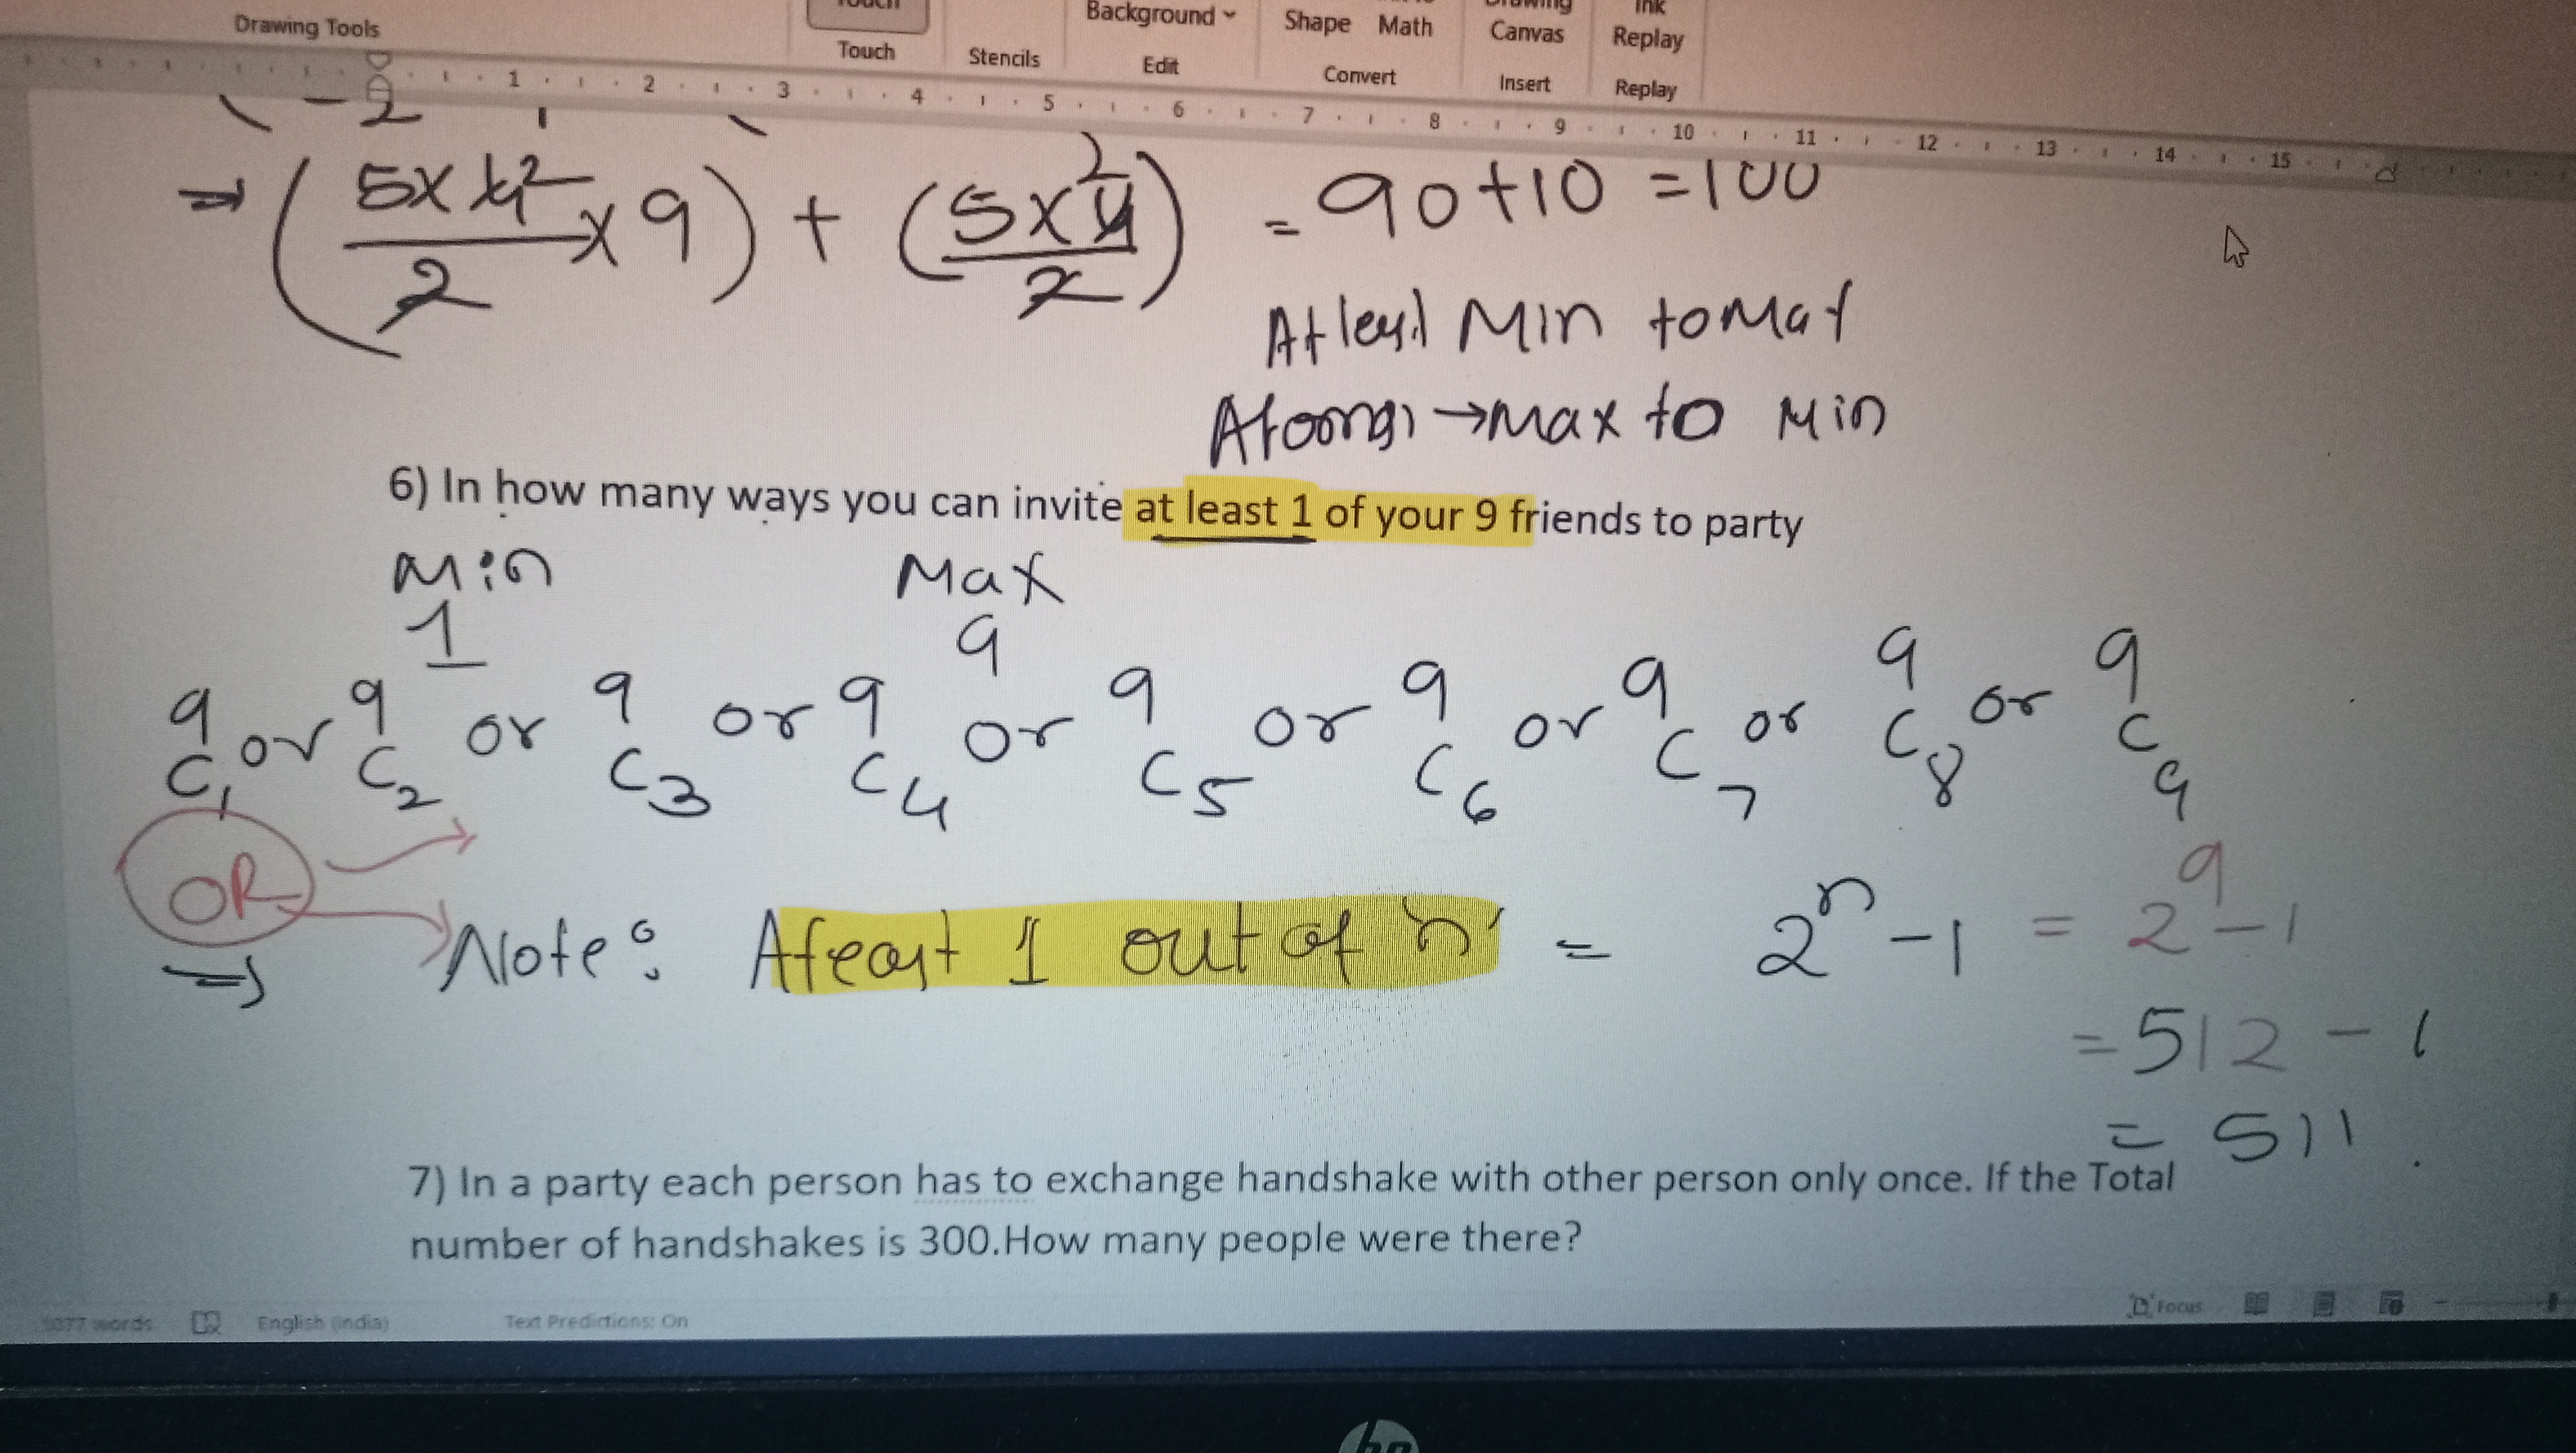 Drawing Tools Touch Stencils Edit Background Convert Shape Math Insert Canvas Replay Ink Replay
1 2 3 4 5 6 7 8 9 10 11 12 13 14 15
→ (5x4²/2 x 9) + (5x4²/2) = 90+10 = 100
Atleast Min to Mat
Atmost → Max to Min
6) In how many ways you can invite at least 1 of your 9 friends to party
Min Max
1 9
9c1 or 9c2 or 9c3 or 9c4 or 9c5 or 9c6 or 9c7 or 9c8 or 9c9
OR
⇒ Note: Atleast 1 out of 'n' = 2ⁿ - 1 = 2⁹ - 1
= 512 - 1
= 511.
7) In a party each person has to exchange handshake with other person only once. If the Total
number of handshakes is 300.How many people were there?
1077 words English (India) Text Predictions: On Focus